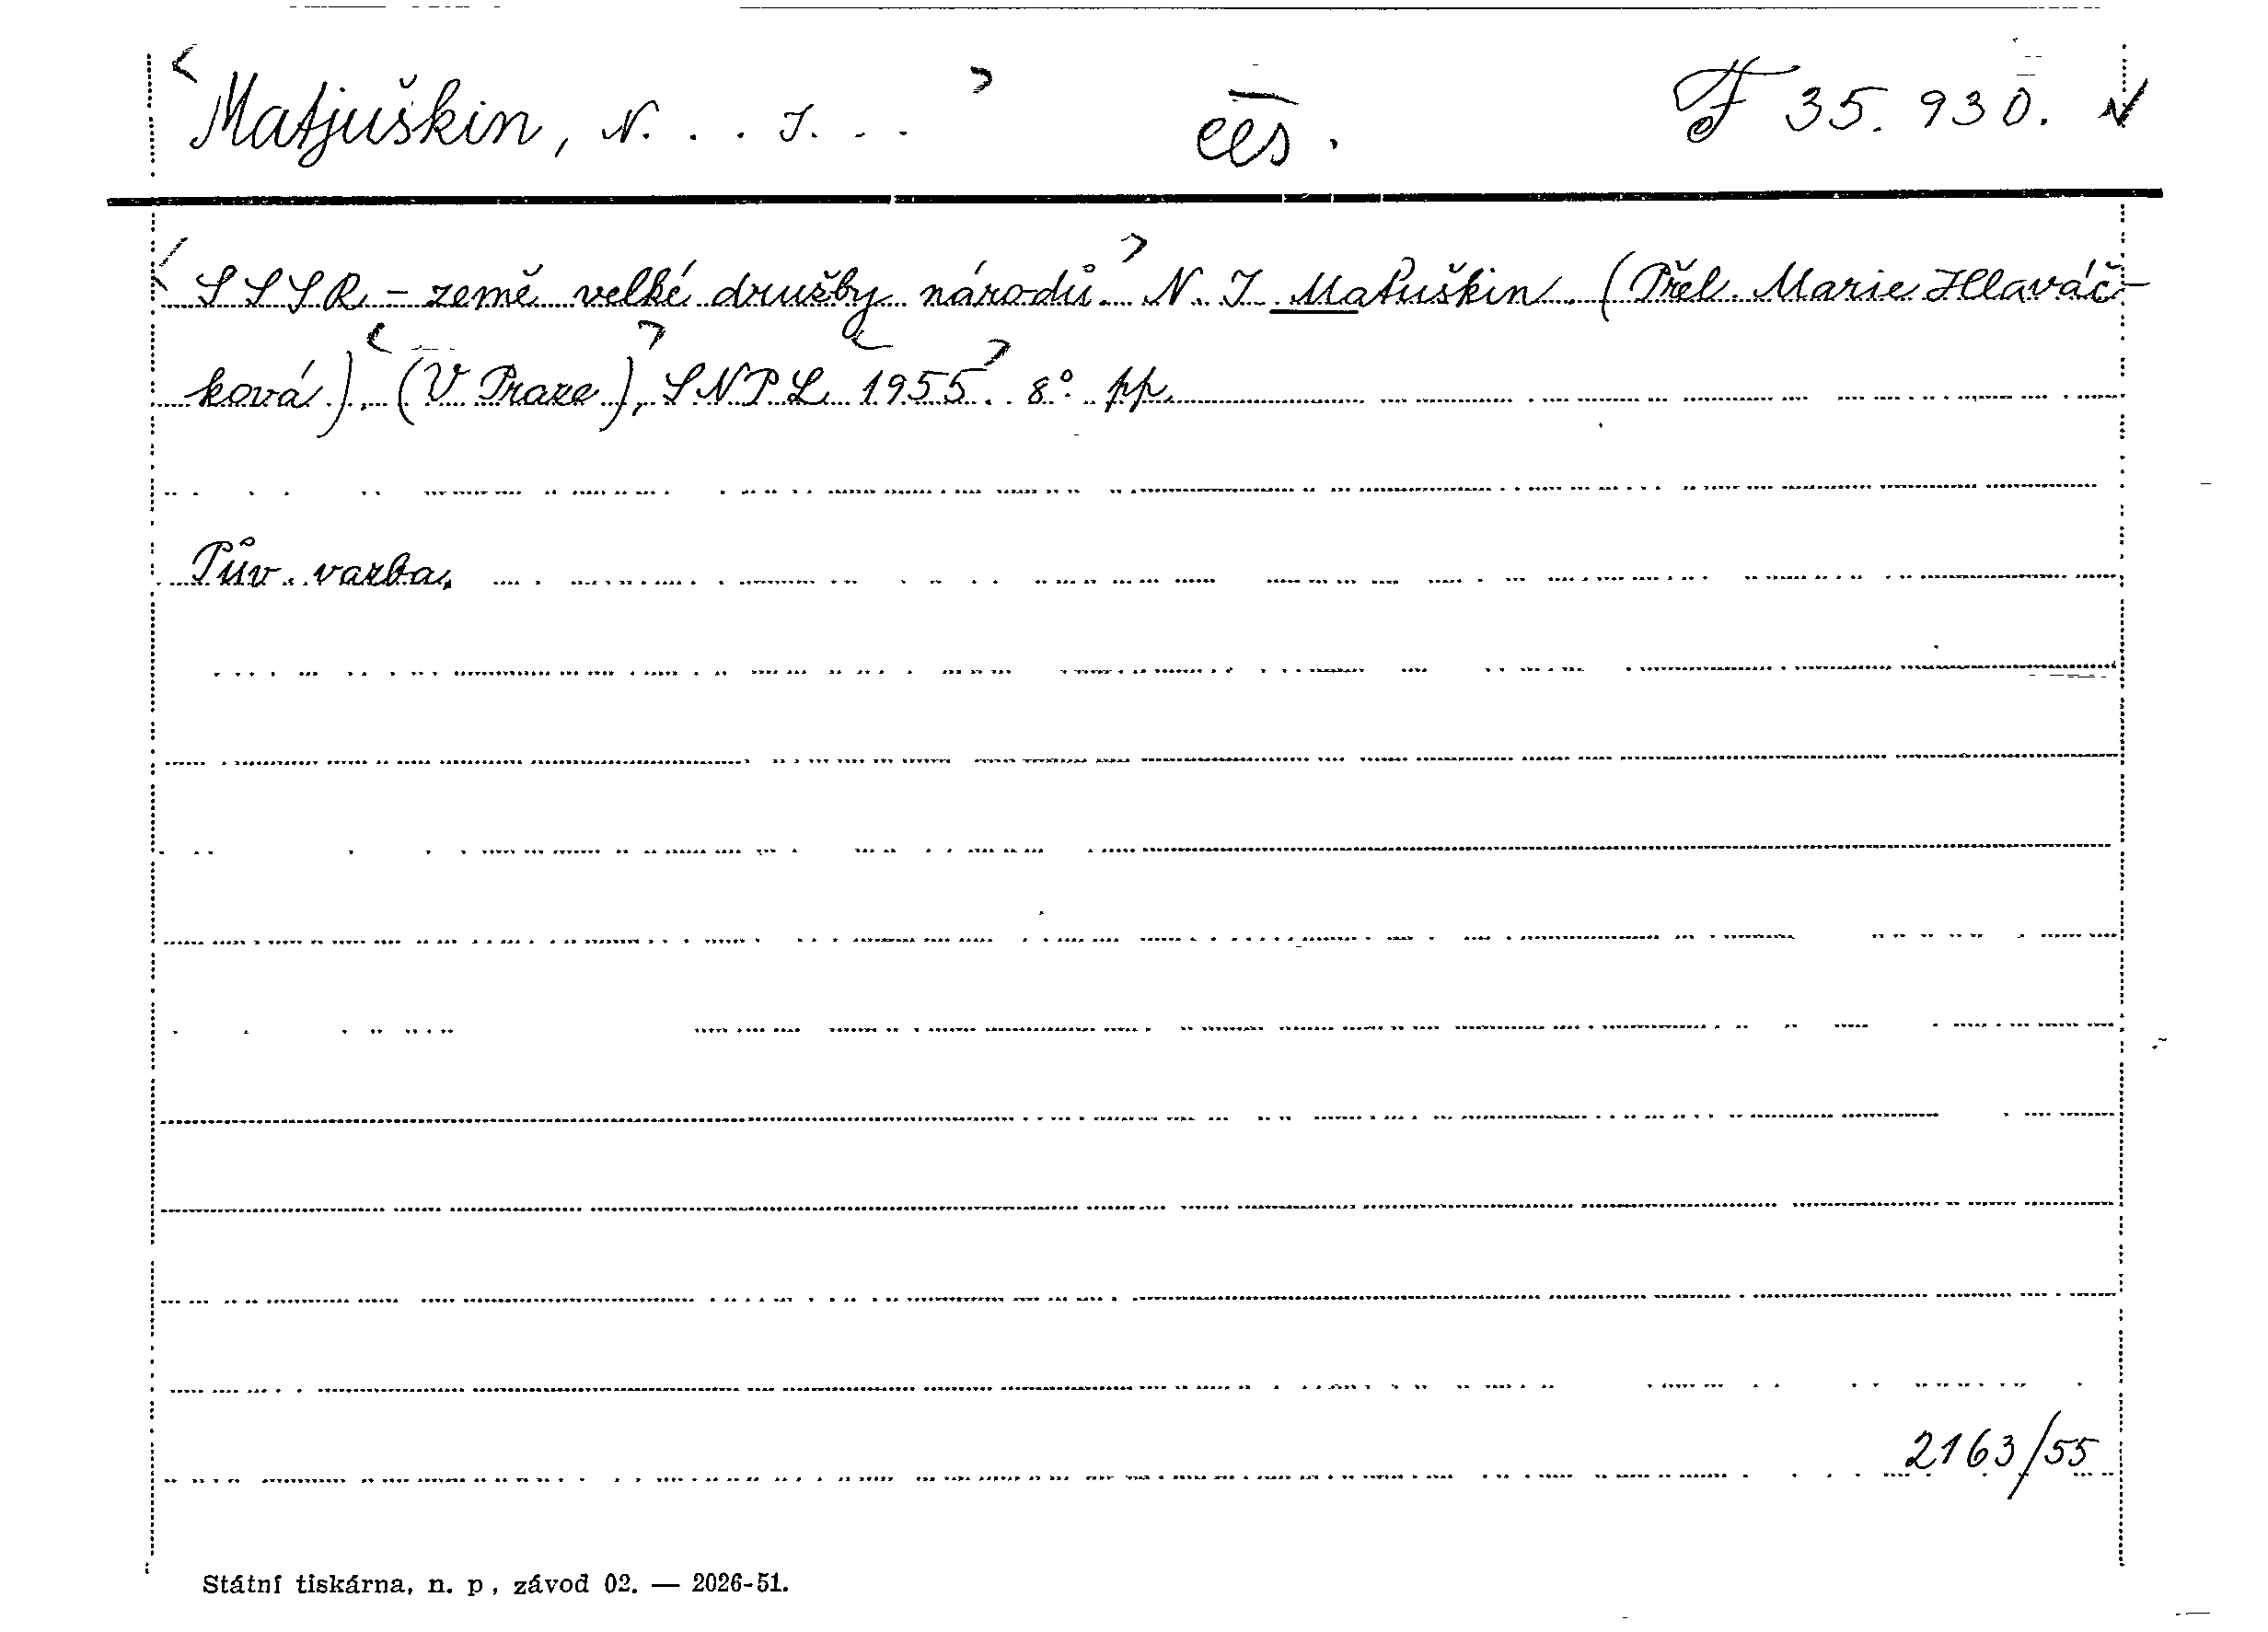 < Matjuškin, N. . . I. . . > čes. F 35.930. N
< SSSR - země velké družby národů. > N. I. Matuškin. (Přel. Marie Hlaváč-
ková). < (V Praze), > SNPL < 1955 >. 8° pp.
Pův. vazba.
2163/55
Státní tiskárna, n. p., závod 02. — 2026-51.